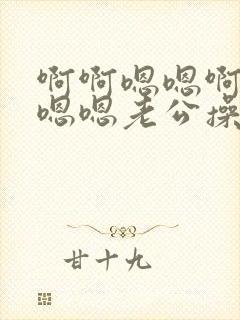 啊啊嗯嗯啊
嗯嗯老公操
甘十九